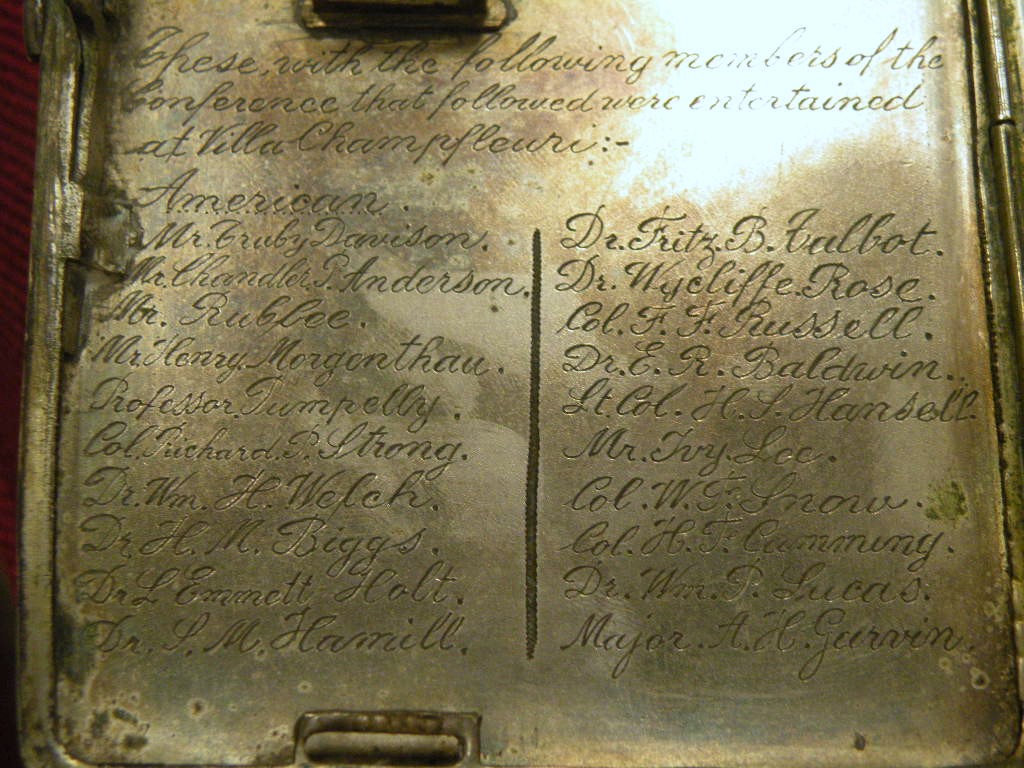 These, with the following members of the
Conference that followed were entertained
at Villa Champfleuri:-
American.
Mr. Truby Davison.
Mr. Chandler P. Anderson.
Mr. Rublee.
Mr. Henry Morgenthau.
Professor Pumpelly.
Col. Richard. P. Strong.
Dr. Wm. H. Welch.
Dr. H. M. Biggs.
Dr L Emmett Holt.
Dr. S. M. Hamill.
Dr. Fritz. B. Talbot.
Dr. Wycliffe. Rose.
Col. F. F. Russell.
Dr. E. R. Baldwin.
Lt. Col. H. S. Hansell.
Mr. Ivy. Lee.
Col. W. F. Snow.
Col. H. F. Cumming.
Dr. Wm. P. Lucas.
Major. A. H. Garvin.